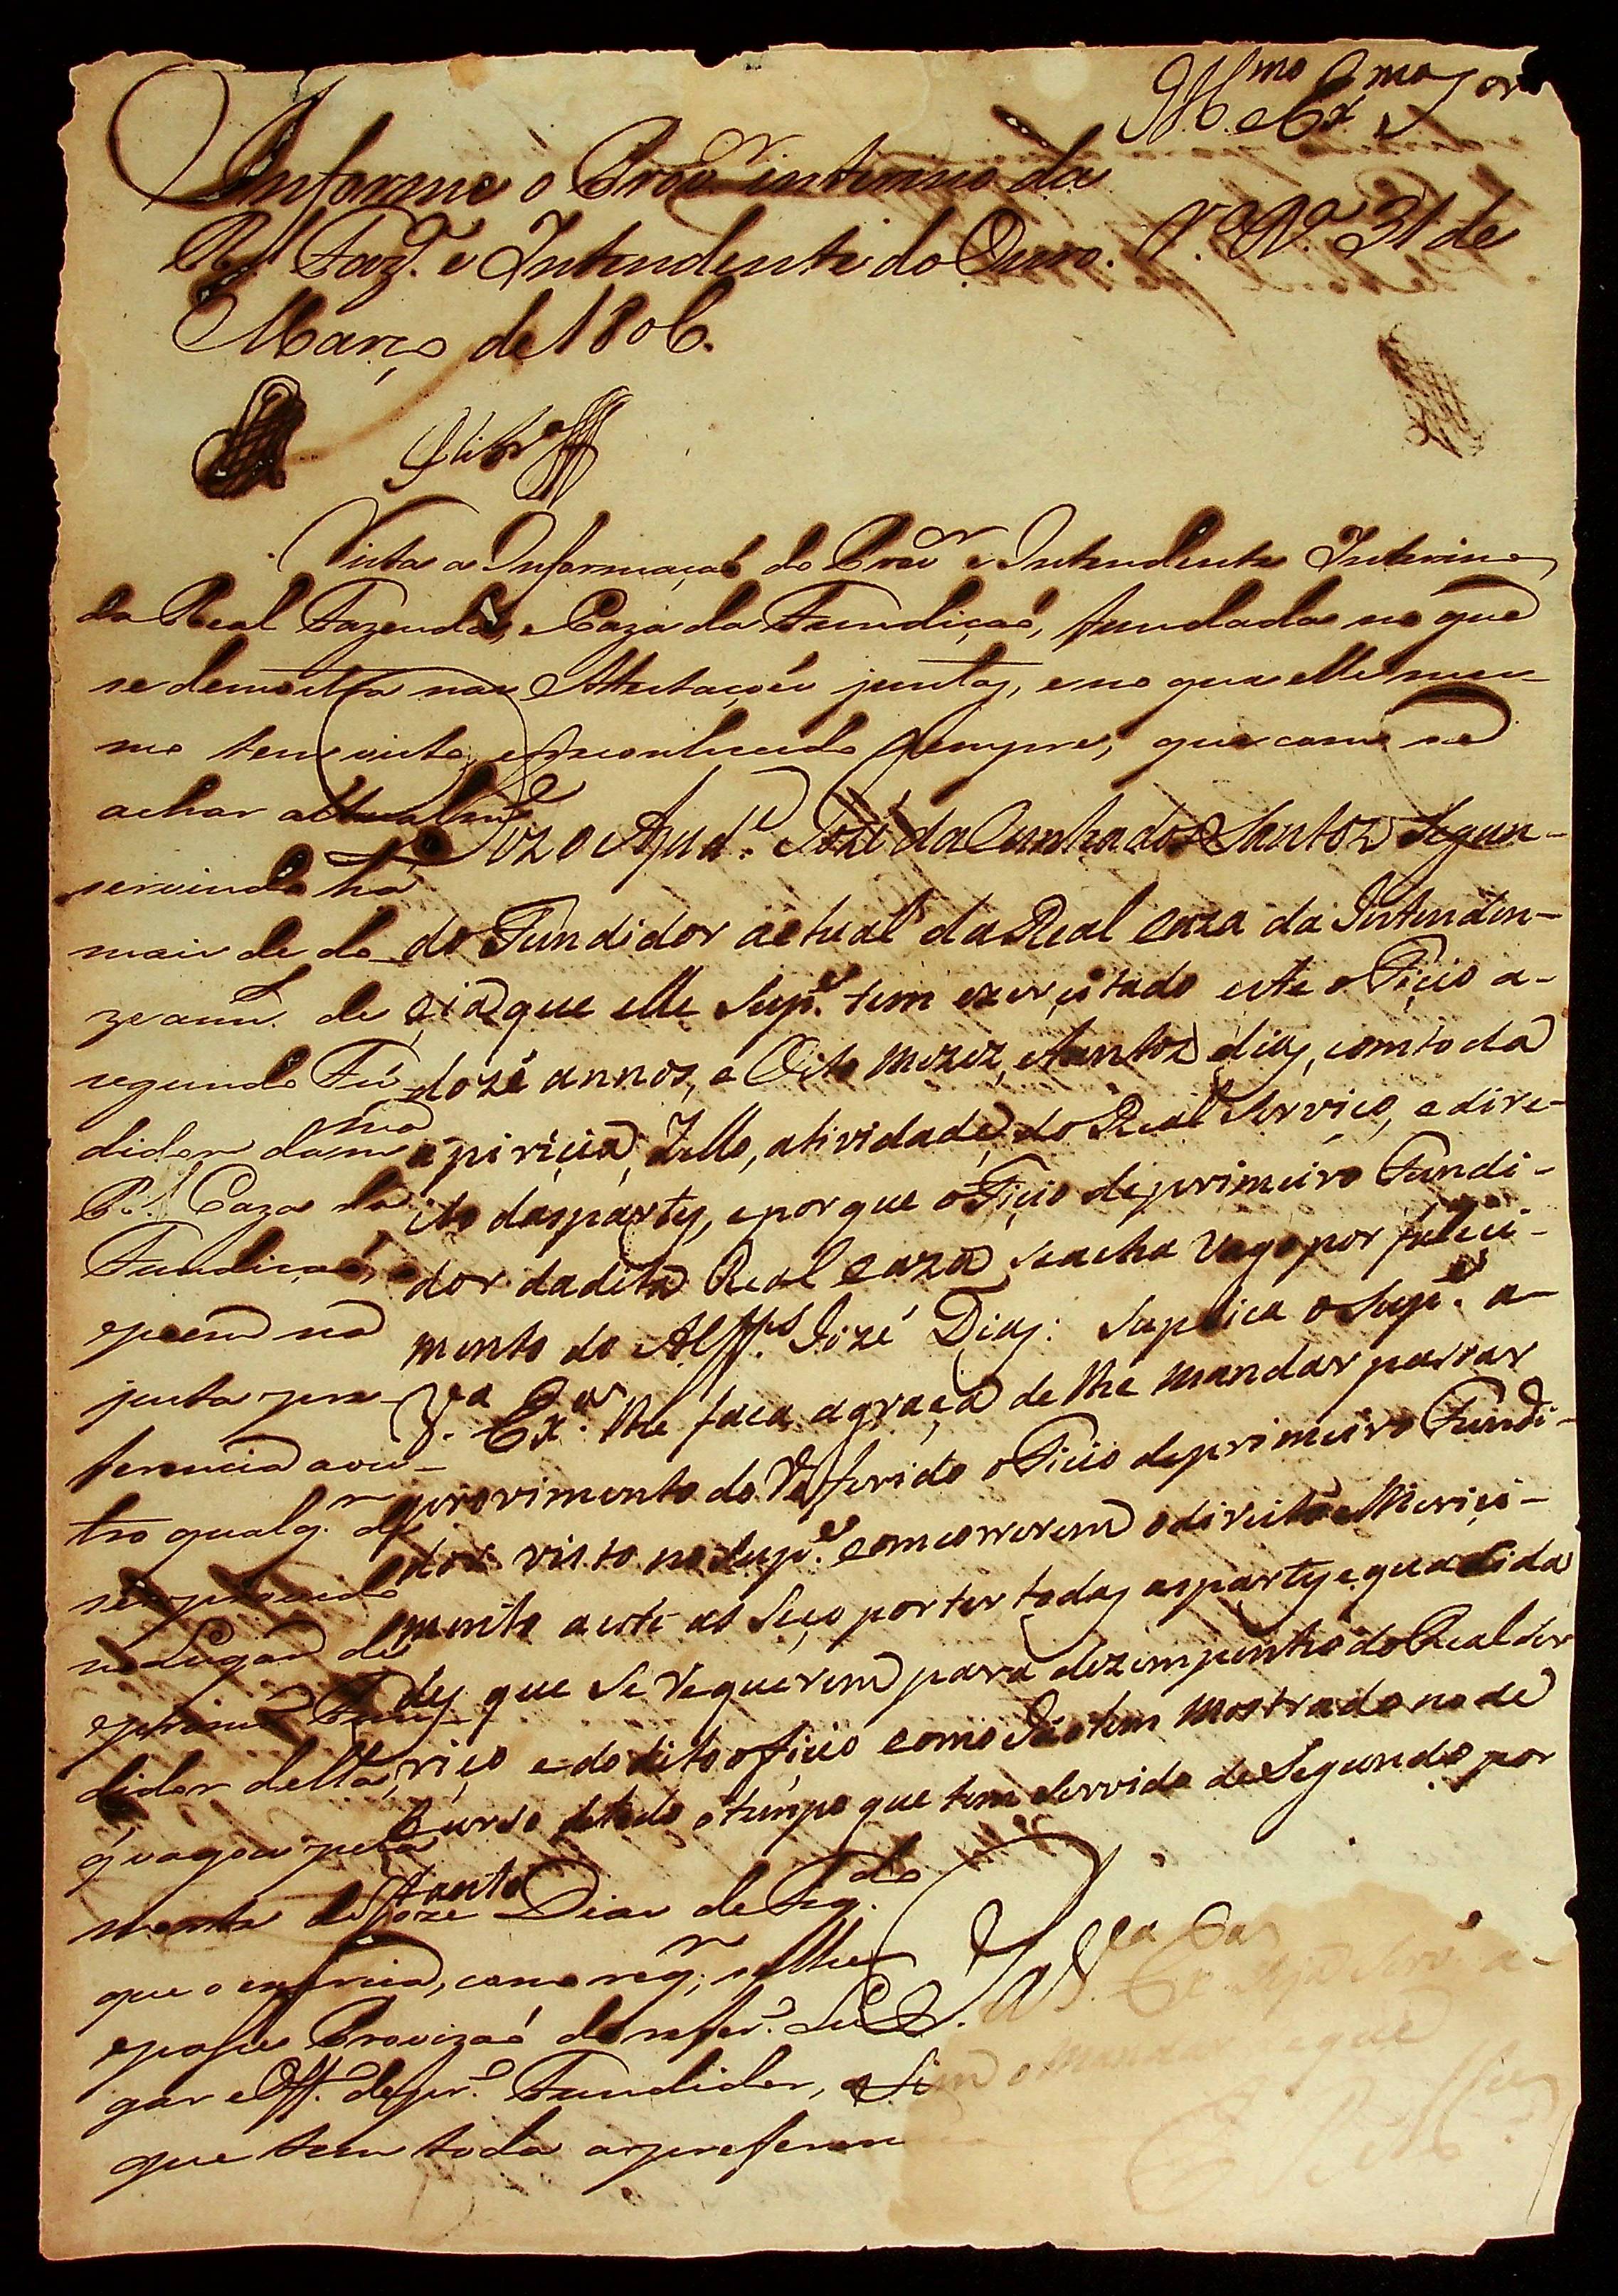 Ill.mo e Ex.mo S.or
Informe o Prov.or interino da
R.l Faz.da e Intendente do Ouro. V.a 31 de
Março de 1806.
Vista a Informaçaõ do Prov.or e Intendente Interino
da Real Fazenda, e Caza da Fundiçaõ, fundada no que
se demostra nas Attestaçoẽs juntas, e no que elle mes-
mo tem visto, e reconhecido sempre, que como se
achar actualm.e
servindo há
mais de do-
ze ann.s de
segundo Fũ-
didor da m.ma
R.l Caza da
Fundiçaõ,
e
justa pre-
ferencia a ou-
tro qualq.r
no Lugar de
prim.o Fun-
didor della,
q vagou pela
morte de Joze Dias de
que o exercia, como req.r, se lhe
passe Provizaõ do refer.o Lu-
gar e Off.o de pr.o Fundidor,
que tem toda a preferen
Diz o Ajud.e Jozé da Cunha dos Santos Segun-
do Fundidor actual da Real Caza da Intenden-
cia que elle Sup.e tem exercitado este oficio a-
doze annos, e Oito mezez, e tantos dias, com toda
a piricia, Zello, atividade, do Real Serviço, e dire-
ito das partes, e por que o oficio de primeiro Fundi-
dor da dita Real Caza se acha Vago por faleci-
mento do Alff.s Jozé Dias: Suplica o Sup.e a-
V.a Ex.a lhe faca a graça de lhe mandar passar
provimento do Referido oficio de primeiro Fundi-
dor visto no Sup.e comcorrerem o direito e Mereci-
mento a este aSeço por ter todas as partes e qualida
des que Se Requerem para dezempenho do Real Ser
viço e do dito oficio como Ja o tem mostrado no de
Curso de todo o tempo que tem Servido de Segundo por
tanto
P. a V.a Ex.a Seja Serv.o a-
Sim o Mandar e que